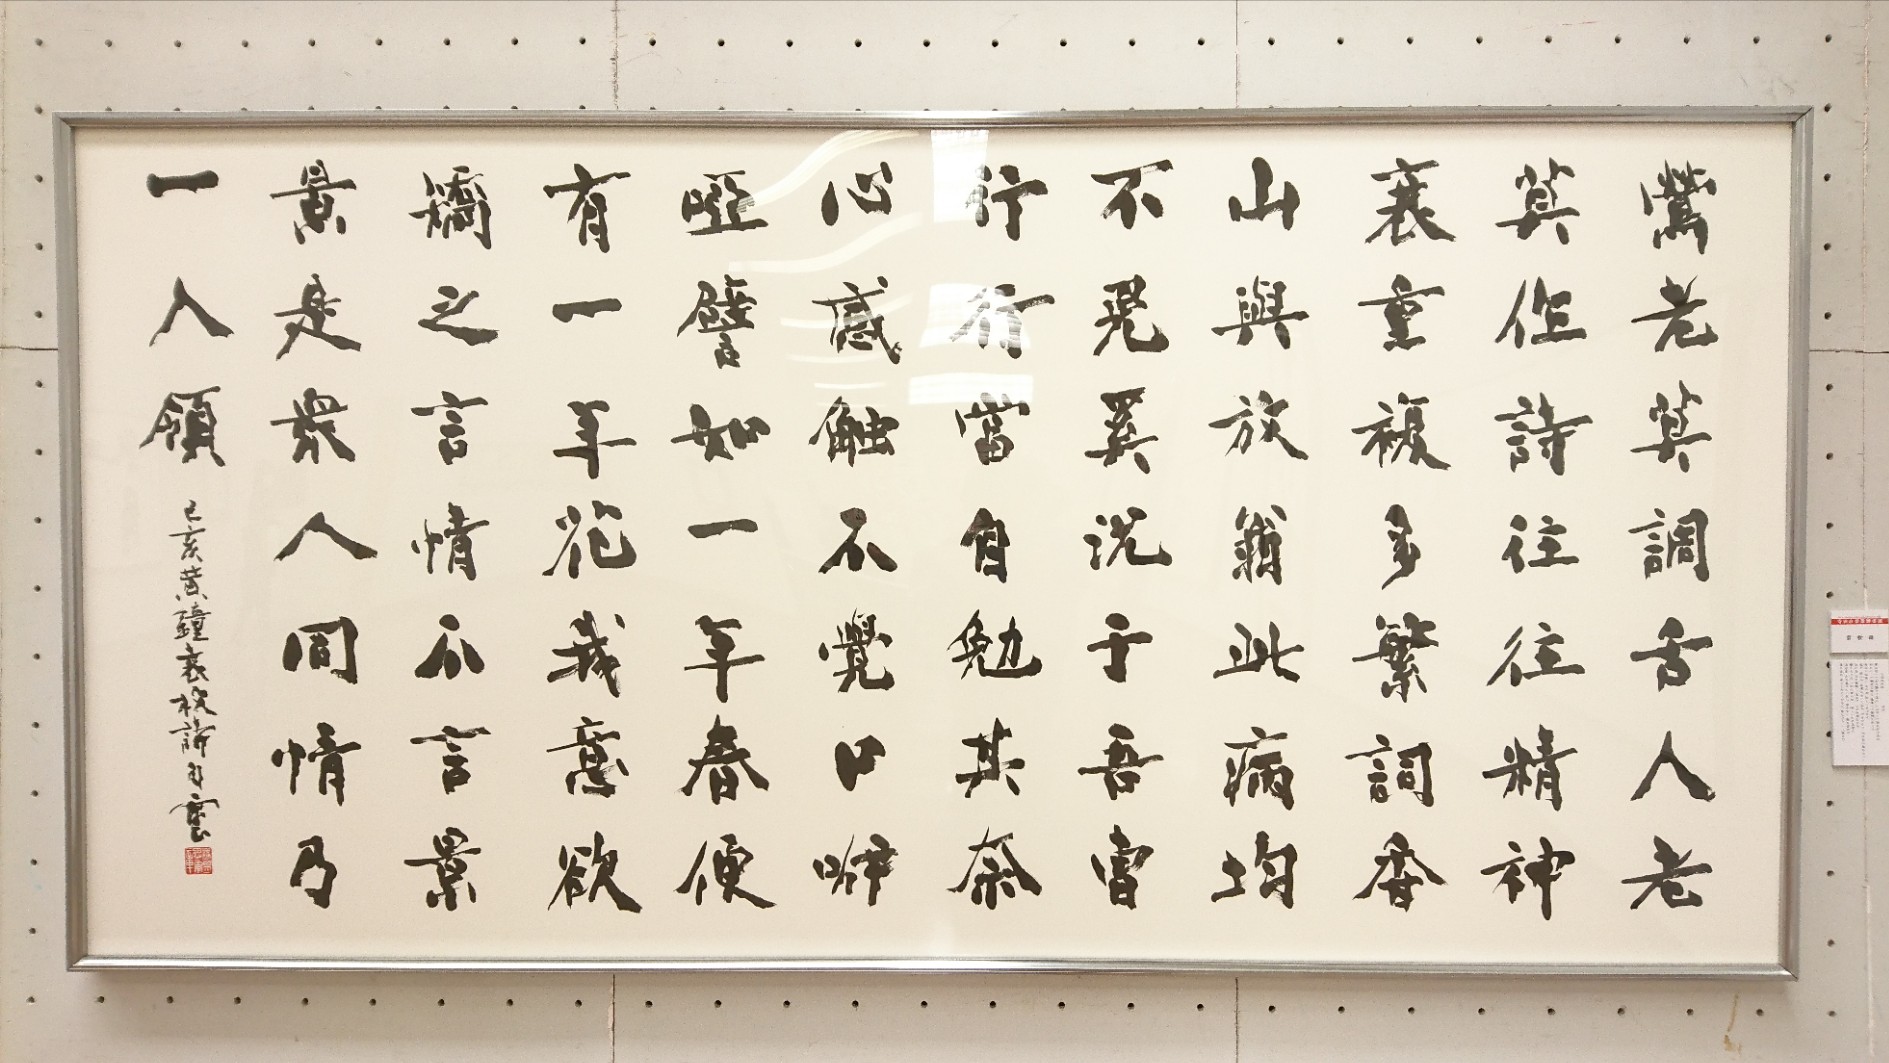 鶯老莫調舌人老
莫作詩往往精神
衰重複多繁詞香
山與放翁此病均
不免奚況于吾曹
行行當自勉其奈
心感觸不覺口咿
啞譬如一年春便
有一年花我意欲
矯之言情不言景
景是眾人同情乃
一人領
己亥黃鐘袁枚詩 雲